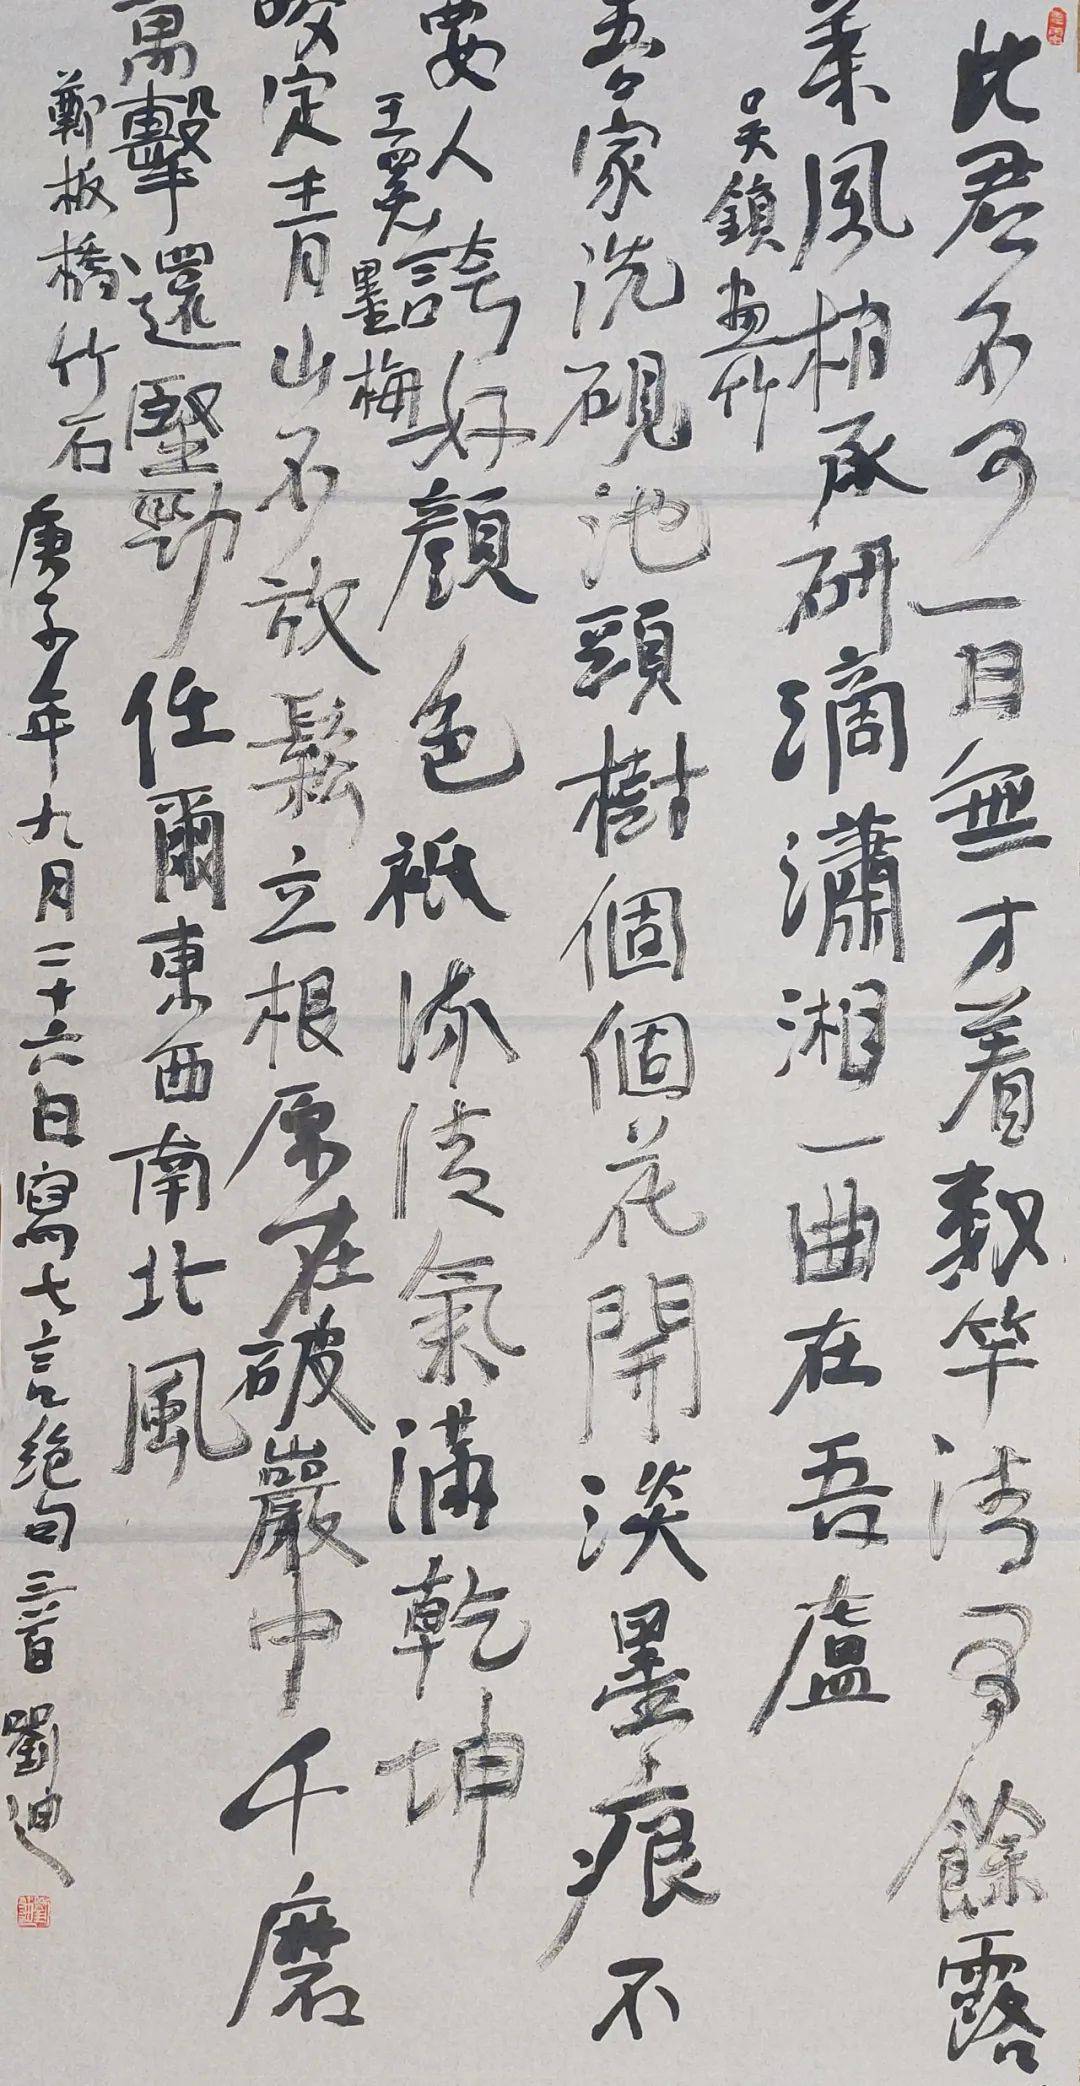 此君不可一日無才着數竿清有餘露
葉風梢承研滴瀟湘一曲在吾廬
吴鎮畫竹
吾家洗硯池頭樹個個花開淡墨痕不
要人誇好顏色祇流清氣滿乾坤
王冕墨梅
咬定青山不放鬆立根原在破巖中千磨
萬擊還堅勁任爾東西南北風
鄭板橋竹石
庚子年九月二十六日寫七言绝句三首劉迪